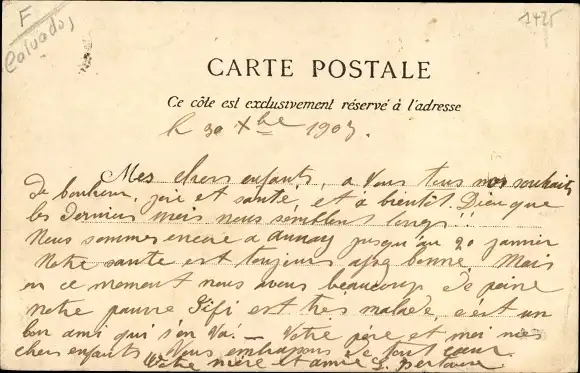 F
Calvados
1425
CARTE POSTALE
Ce côte est exclusivement réservé à l'adresse
le 30 Xbre 1903.
Mes chers enfants, a Vous tous nos souhaits
de bonheur, joie et santé, et à bientôt. Dieu que
les derniers mois nous semblent longs!!
Nous sommes encore a aunay jusqu'au 20 janvier
Notre santé est toujours assez bonne. Mais
en ce moment nous avons beaucoup de peine
notre pauvre Fifi est très malade, c'est un
bon ami qui s'en va. — Votre père et moi mes
chers enfants Vous embrassons de tout cœur.
Votre mère et amie